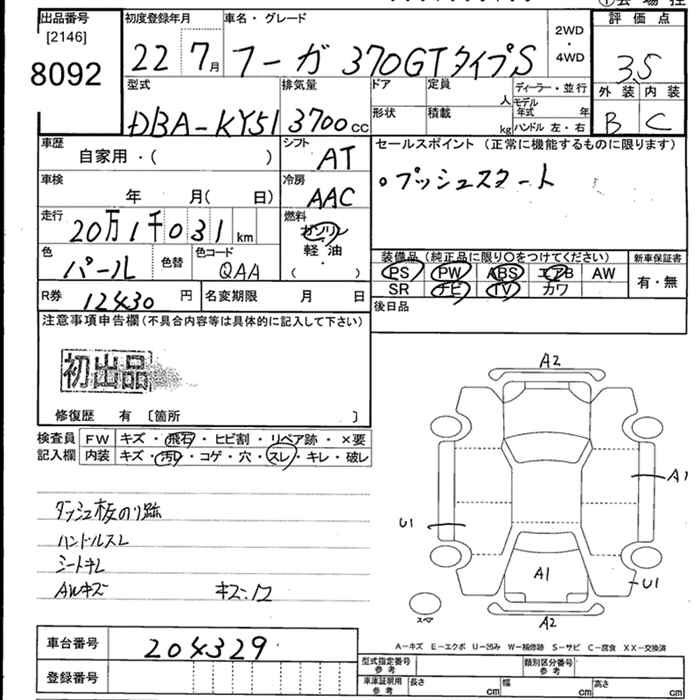 ①会場控
出品番号 初度登録年月 車名・グレード 2WD・4WD 評価点
[2146]
8092
22 7月 フーガ 370GTタイプS 3.5
型式 排気量 ドア 定員 人 ディーラー・並行 外装 内装
DBA-KY51 3700cc 形状 積載 kg モデル年式 年 ハンドル 左・右 B C
車歴 自家用・( ) シフト AT セールスポイント(正常に機能するものに限ります)
車検 年 月( 日) 冷房 AAC ○プッシュスタート
走行 20万1千031km 燃料 ガソリン 軽油 ( ・ )
色 パール 色替 色コード QAA 装備品(純正品に限り○をつけてください) 新車保証書
PS PW ABS エアB AW 有・無
SR ナビ TV カワ
R券 12430円 名変期限 月 日 後日品
注意事項申告欄(不具合内容等は具体的に記入して下さい)
初出品
修復歴 有 〔箇所 〕
検査員 FW キズ・飛石・ヒビ割・リペア跡・×要
記入欄 内装 キズ・汚れ・コゲ・穴・スレ・キレ・破レ
A2
A1
U1
A1
U1
A2
スペア
ダッシュ板のり跡
ハンドルスレ
シートキレ
AWキズ キズ:小
A-キズ E-エクボ U-凹み W-補修跡 S-サビ C-腐食 XX-交換済
車台番号 204329
登録番号
型式指定番号 参考 類別区分番号 参考
車庫証明用 参考 長さ cm 幅 cm 高さ cm